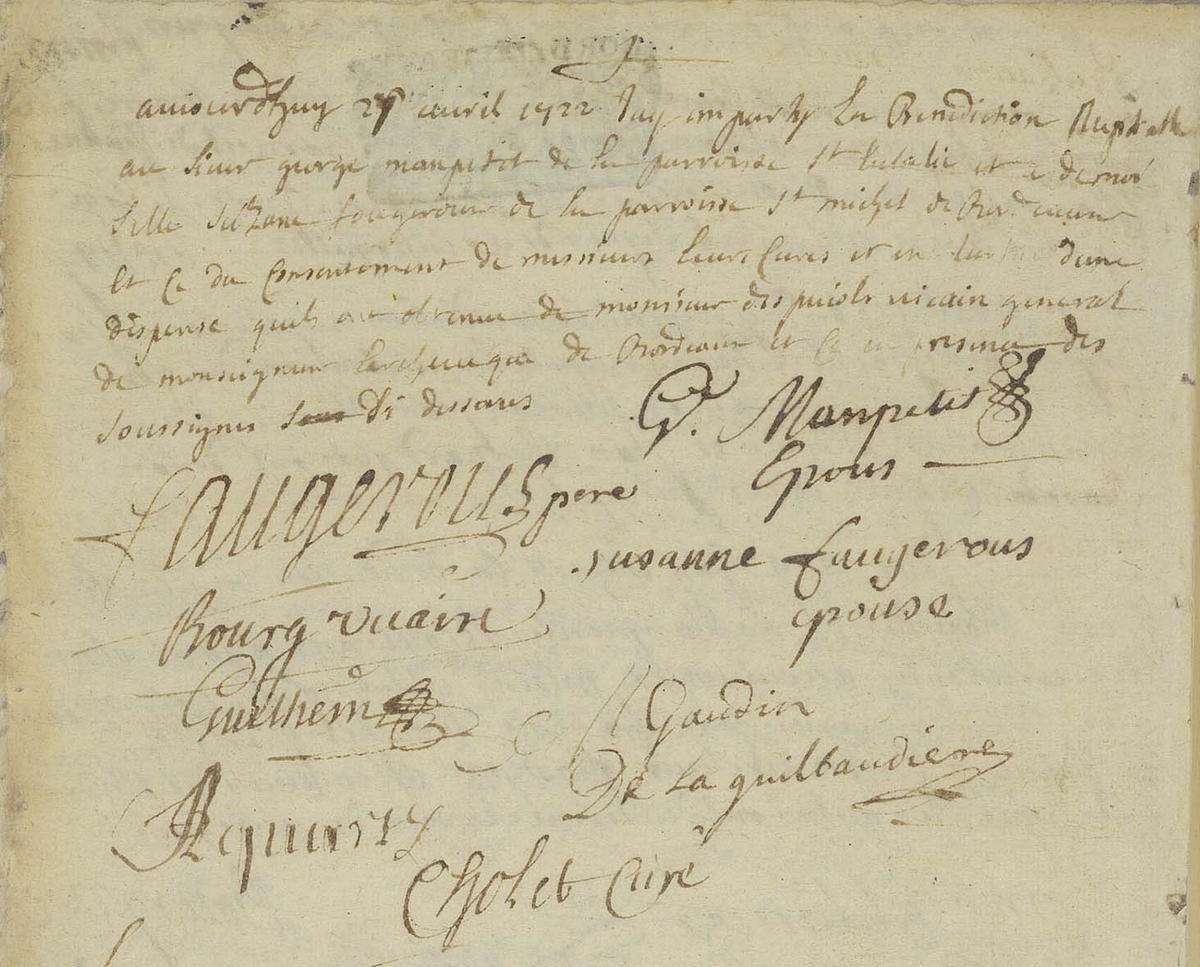 aujourdhuy 27 avril 1722 Jay imparty la Benediction Nuptialle
au sieur george manpetit de la parroisse st Eulalie et a demoi
selle suzane fougerour de la parroisse st michel de Bordeaux
et ce du consentement de messieurs leurs Cures et en dune
dispense quils ont obtenue de monsieur despujols vicain general
de monseigneur larcheveque de Bordeaux et ce en presence des
soussignes di dessous
G. Manpetit
Epous
faugerous pere
susanne faugerous
epouse
Bourg vicaire
Guilhem
Gaudin
De la guilbaudiere
Cholet Curé